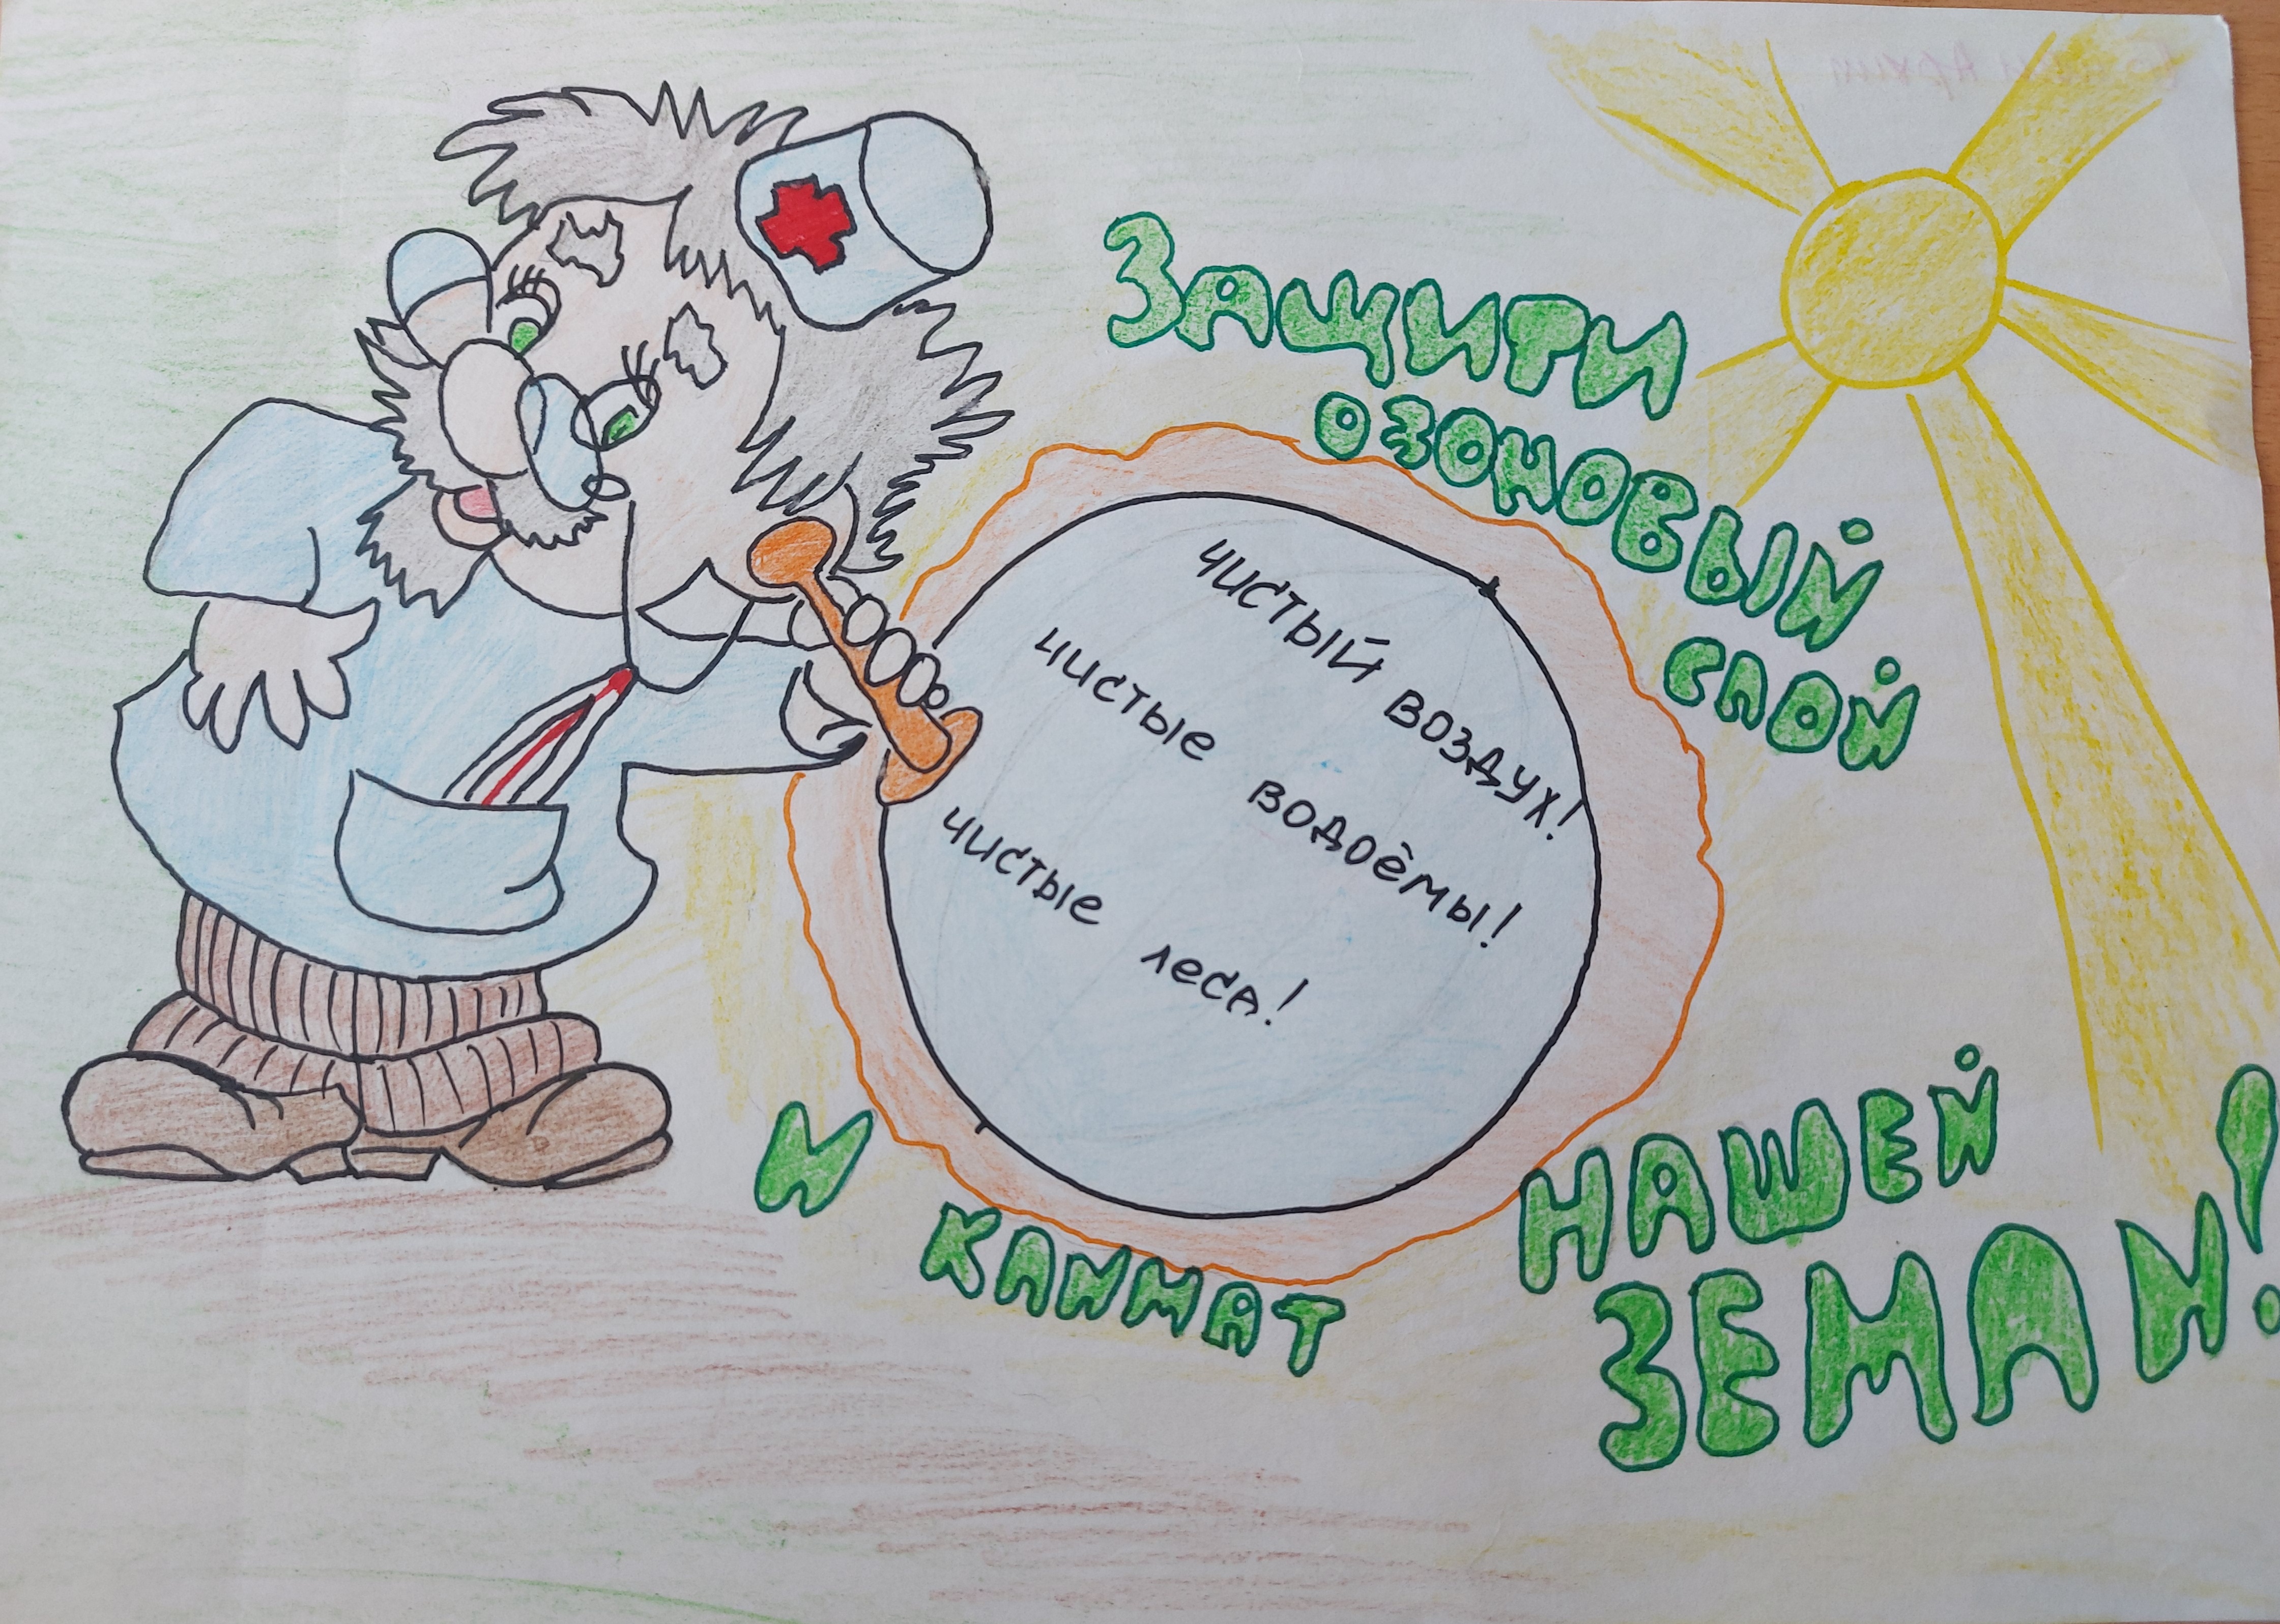 ЗАЩИТИ
ОЗОНОВЫЙ
СЛОЙ
чистый воздух!
чистые водоёмы!
чистые леса!
И КЛИМАТ
НАШЕЙ
ЗЕМЛИ!